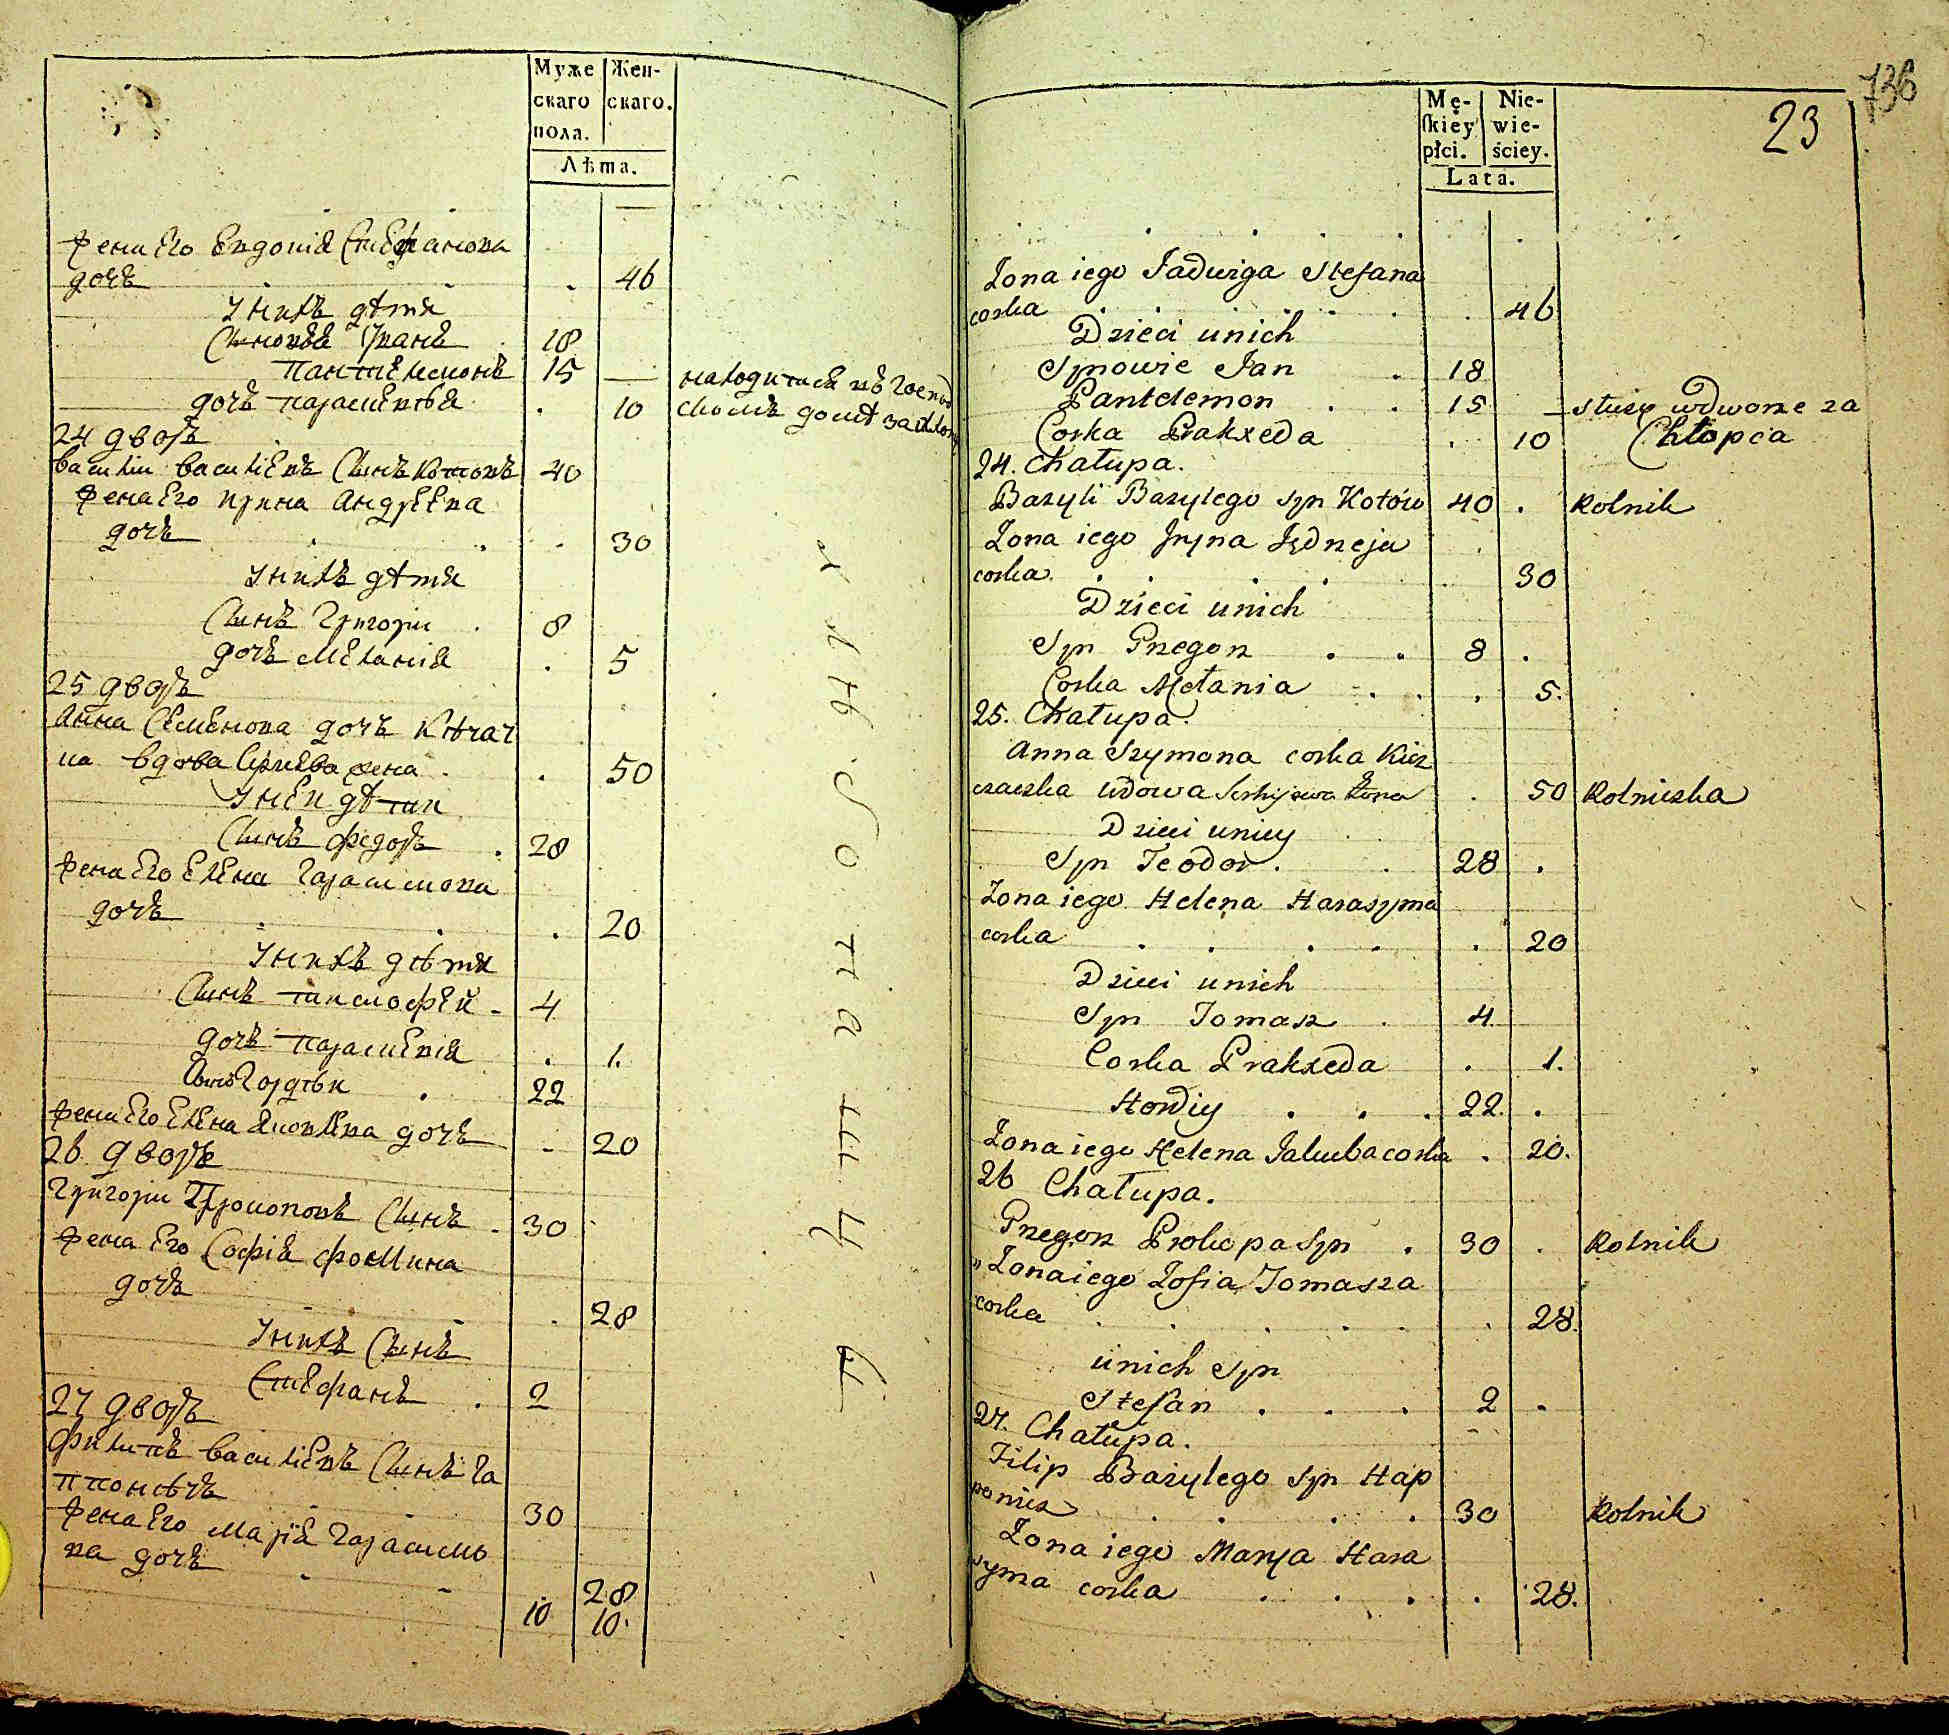 Муже
скаго
пола.
Жен-
скаго.
Лѣта.
жена Его Евдокия Стефанова
дочь 46
У нихъ дѣтя
Сыновья Иванъ 18
Пантелемонъ 15 — находится въ
дочь парасковья 10 своемъ доме за
24 дворъ
Василии Васильевъ Сынъ Котовъ 40
жена Его Ирина Андреева
дочь 30
У нихъ дѣтя
Сынъ Григори 8
дочь Мелания 5
25 дворъ
Анна Семенова дочь
на вдова жена 50
У неи дѣти
Сынъ Федоръ 28
жена Его Елена Гарасимова
дочь 20
У нихъ дѣтя
Сынъ тимофей 4
дочь парасковия 1.
Гордѣи 22
жена Его Елена Яковлева дочь 20
26 дворъ
Григори Прокоповъ Сынъ 30
жена Его София Фомина
дочь 28
У нихъ Сынъ
Стефанъ 2
27 дворъ
Филипъ Васильевъ Сынъ Га
ппоновъ 30
жена Его Мария Гарасимо
ва дочь 28
10 10.
736
23
Mę-
skiey
płci.
Nie-
wie-
ściey.
Lata.
Zona iego Jadwiga Stefana
corka 46
Dzieci unich
Synowie Jan 18
Pantelemon 15 — służy wdworze za
Corka Prakxeda 10 Chłopca
24. Chałupa.
Bazyli Bazylego syn Kotów 40 Rolnik
Zona iego Jryna Jędrzeja
corka 30
Dzieci unich
Syn Grzegorz 8
Corka Mełania 5.
25. Chałupa.
Anna Szymona corka Kicz
czaczka wdowa Serhijowa żona 50 Rolniczka
Dzieci uniey
Syn Teodor. 28
Zona iego Helena Harasyma
corka 20
Dzieci unich
Syn Tomasz 4
Corka Prakxeda 1.
Hordiy 22.
Zona iego Helena Jakuba corka 20.
26 Chałupa.
Grzegorz Prokopa Syn 30 Rolnik
„ Zona iego Zofia Tomasza
corka 28.
unich Syn
Stefan 2
27. Chałupa.
Filip Bazylego Syn Hap
30 Rolnik
Zona iego Marya Hara
syma corka 28.